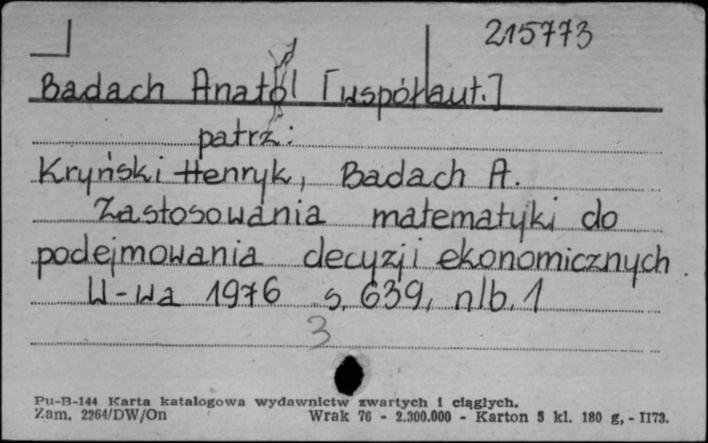 215773
Badach Anatol [współaut.]
patrz:
Kryński Henryk, Badach A.
Zastosowania matematyki do
podejmowania decyzji ekonomicznych.
W-wa 1976 s. 639, nlb. 1
3
Pu-B-144 Karta katalogowa wydawnictw zwartych i ciągłych.
Zam. 2264/DW/On Wrak 76 - 2.300.000 - Karton 5 kl. 180 g, - II73.